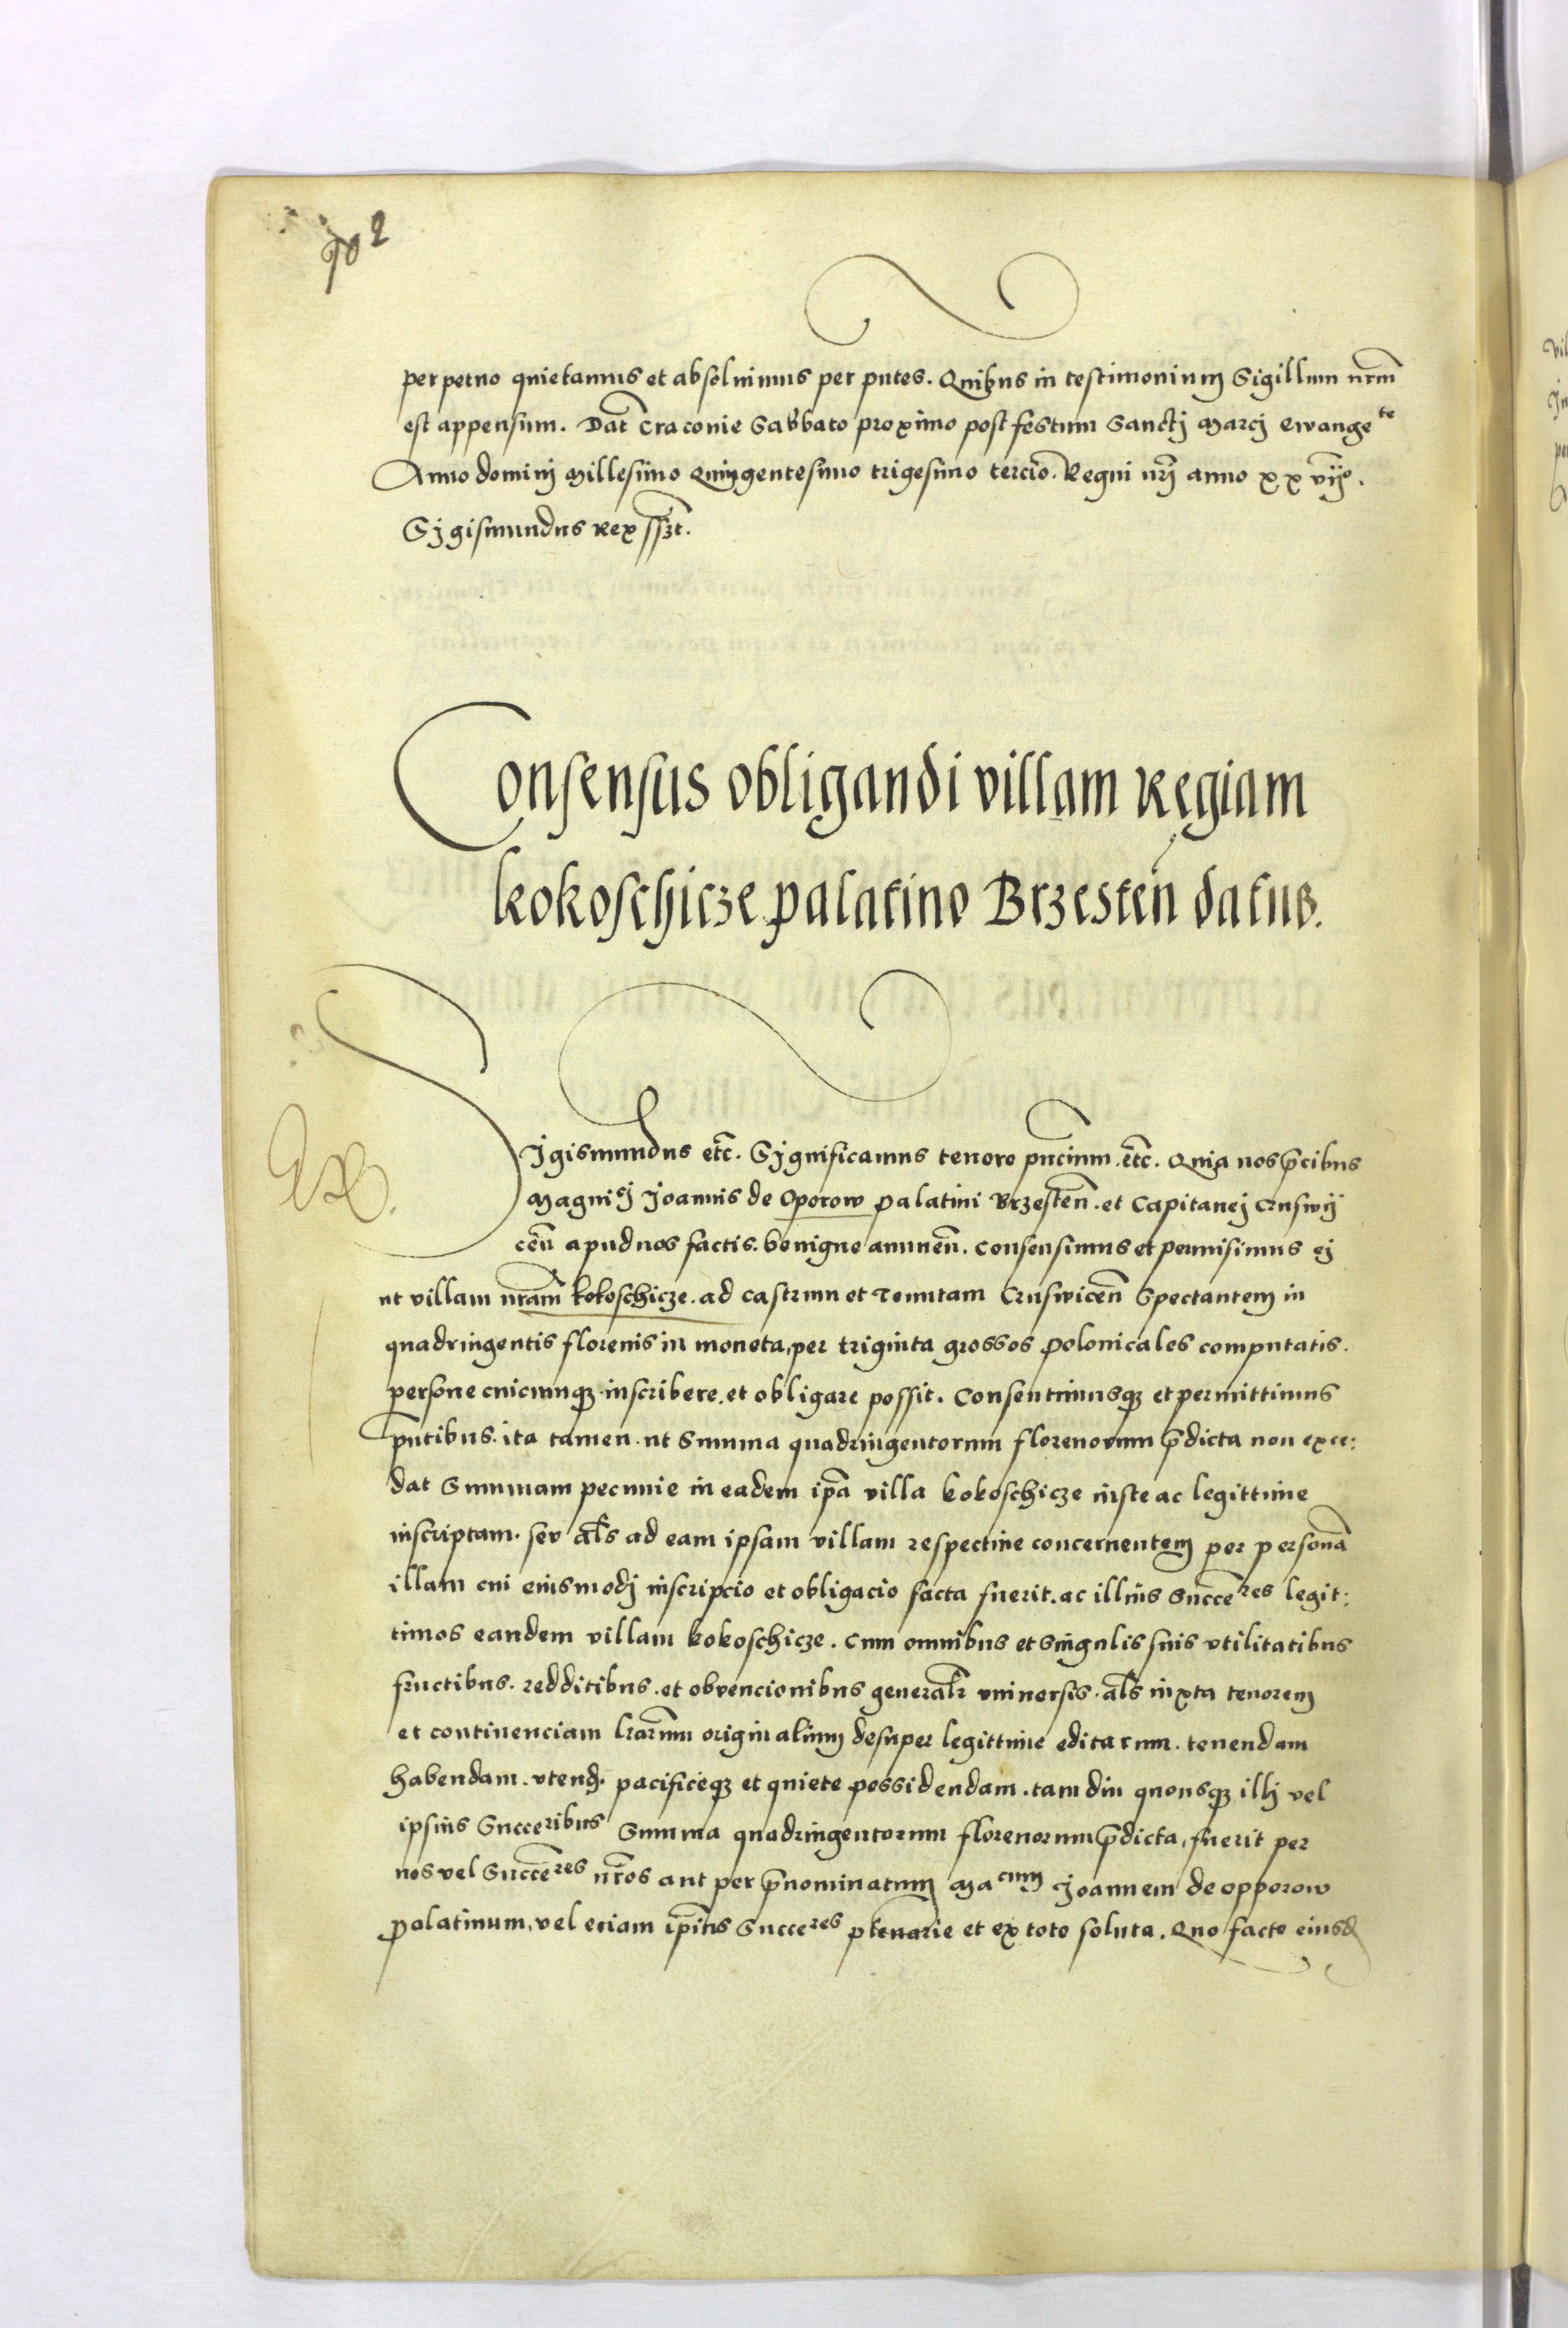 702
perpetuo quietamus et absoluimus per pn̄tes. Quibus in testimonium Sigillum nr̄m
est appensum. Dat̄ Craconie Sabbato proximo post festum Sanctj Marcj Ewangete
Anno dominj Millesimo Quingentesimo trigesimo tercio. Regni nr̄j anno xxvijo.
Sigismundus Rex sszt.
Consensus obligandi villam Regiam
kokoschicze palatino Brzesten̄ datus.
Sigismundus etc̄. Significamus tenore pn̄cium. etc̄. Quia nos p̄cibus
Magnicj Joannis de Oporow Palatini Brzesten̄. et Capitanej Cruswij
cen̄ apud nos factis. benigne annuen̄. consensimus et permisimus ej
ut villam nr̄am kokoschicze. ad castrum et Tenutam Cruswicen̄ Spectantem in
quadringentis florenis in moneta, per triginta grossos Polonicales computatis.
persone cuicumqz inscribere. et obligare possit. Consentimusqz et permittimus
pn̄tibus. ita tamen. ut Summa quadringentorum florenorum p̄dicta non exce:
dat Summam pecunie in eadem ip̄a villa kokoschicze iuste ac legittime
inscriptam. seu al̄s ad eam ipsam villam respectiue concernentem per personā
illam cui eiusmodj inscripcio et obligacio facta fuerit. ac illius Succēres legit:
timos eandem villam kokoschicze. cum omnibus et Singulis suis vtilitatibus
fructibus. redditibus. et obvencionibus general̄r vniuersis. al̄s iuxta tenorem
et continenciam lr̄arum originalium desuper legittime editarum. tenendam
habendam. vtend. pacificeqz et quiete possidendam. tam diu quousqz illj vel
ipsius Succeribus Summa quadringentorum florenorum p̄dicta, fuerit per
nos vel Succēres nr̄os aut per p̄nominatum Macum Joannem de Opporow
Palatinum, vel eciam ip̄ius Succeres plenarie et ex toto soluta. Quo facto eiusd